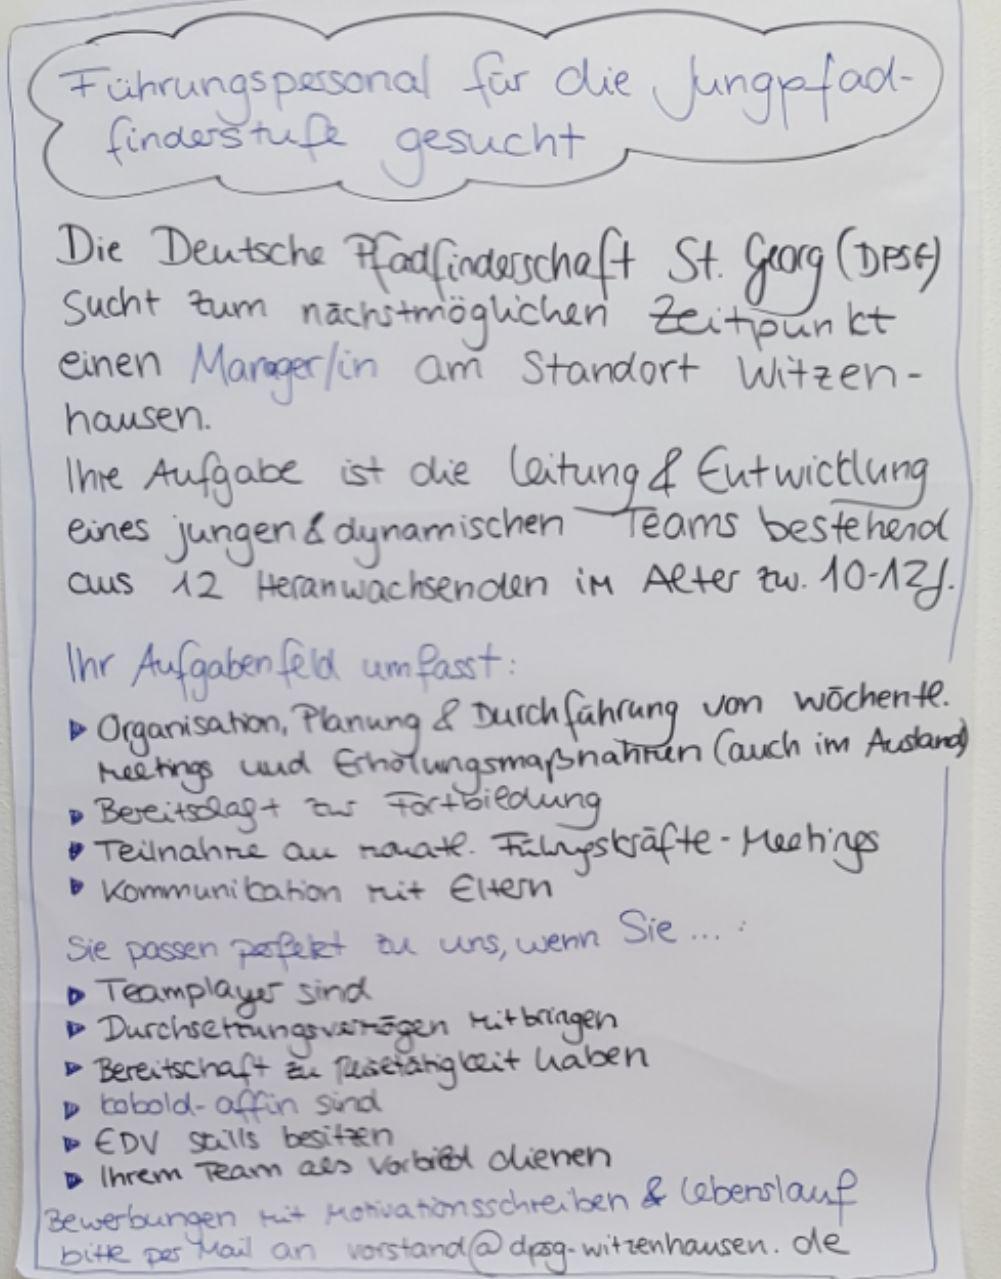 Führungspersonal für die Jungpfad-
finderstufe gesucht
Die Deutsche Pfadfinderschaft St. Georg (DPSG)
sucht zum nächstmöglichen Zeitpunkt
einen Manager/in am Standort Witzen-
hausen.
Ihre Aufgabe ist die Leitung & Entwicklung
eines jungen & dynamischen Teams bestehend
aus 12 Heranwachsenden im Alter zw. 10-12J.
Ihr Aufgabenfeld umfasst:
▶ Organisation, Planung & Durchführung von wöchentl.
Meetings und Erholungsmaßnahmen (auch im Ausland)
▶ Bereitschaft zur Fortbildung
▶ Teilnahme an monatl. Führungskräfte-Meetings
▶ Kommunikation mit Eltern
Sie passen perfekt zu uns, wenn Sie ... :
▶ Teamplayer sind
▶ Durchsetzungsvermögen mitbringen
▶ Bereitschaft zu Reisetätigkeit haben
▶ kobold-affin sind
▶ EDV skills besitzen
▶ Ihrem Team als Vorbild dienen
Bewerbungen mit Motivationsschreiben & Lebenslauf
bitte per Mail an vorstand@dpsg-witzenhausen.de